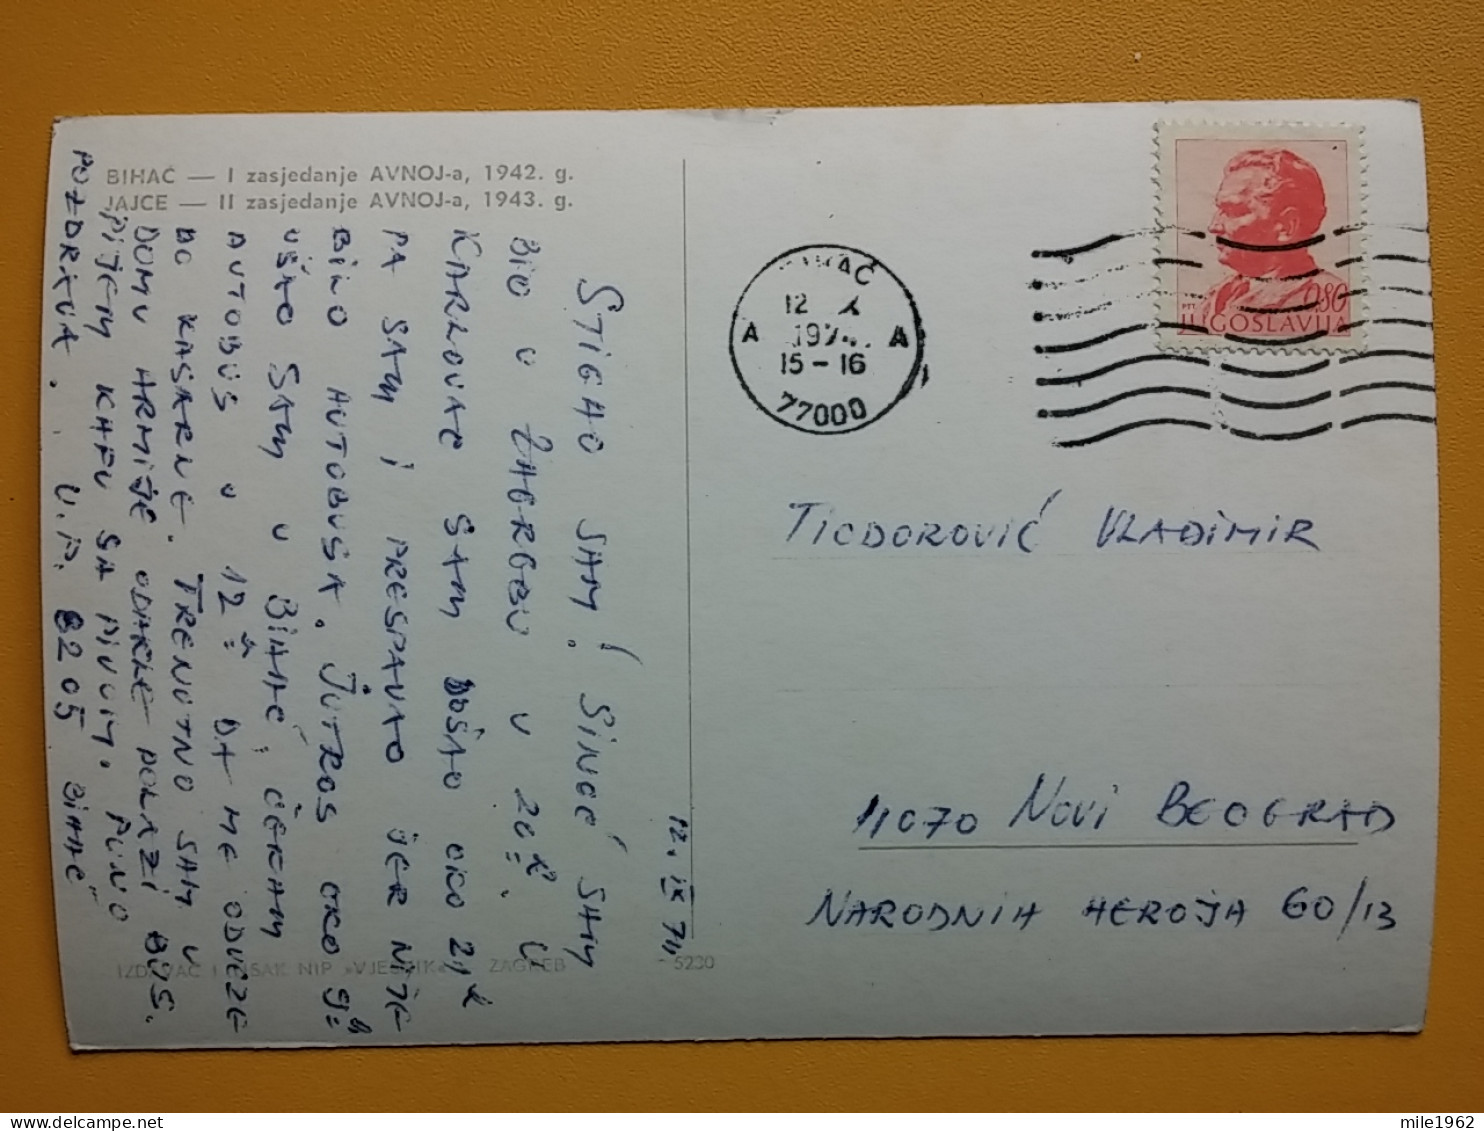 BIHAĆ — I zasjedanje AVNOJ-a, 1942. g.
JAJCE — II zasjedanje AVNOJ-a, 1943. g.
12. IX 74
STIGAO SAM! SINOĆ SAM
BIO U ZAGREBU U 20 h. U
KARLOVAC SAM DOŠAO OKO 21 h
PA SAM I PRESPAVAO JER NIJE
BILO AUTOBUSA. JUTROS OKO 9 h
UŠAO SAM U BIHAĆ, ČEKAM
AUTOBUS U 12 h DA ME ODVEZE
DO KASARNE. TRENUTNO SAM U
DOMU ARMIJE ODAKLE POLAZI BUS.
PIJEM KAFU SA PIVOM. PUNO
POZDRAVA. V.P. 8205 BIHAĆ
IZDAVAČ I TISAK NIP »VJESNIK« ZAGREB
5230
12 X
1974
A A
15-16
77000
PTT
0.80
JUGOSLAVIJA
TIODOROVIĆ VLADIMIR
11070 NOVI BEOGRAD
NARODNIH HEROJA 60/13
mile1962